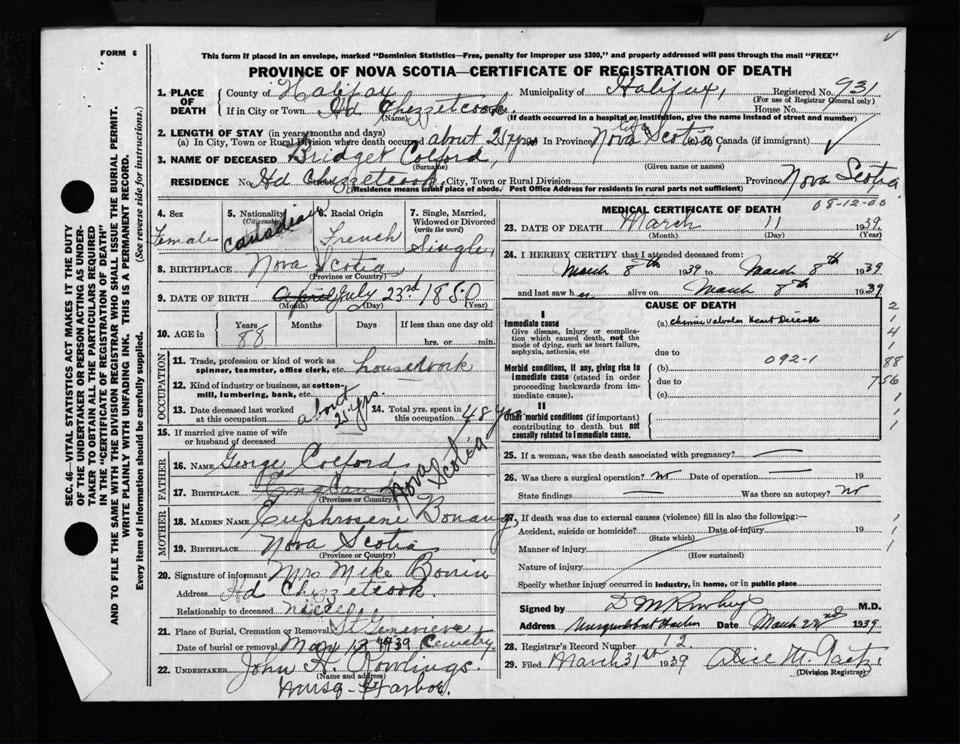 FORM 6
This form if placed in an envelope, marked "Dominion Statistics—Free, penalty for improper use $300," and properly addressed will pass through the mail "FREE"
PROVINCE OF NOVA SCOTIA—CERTIFICATE OF REGISTRATION OF DEATH
1. PLACE OF DEATH County of Halifax Municipality of Halifax, Registered No. 931
(For use of Registrar General only)
If in City or Town Hd Chezzetcook, House No.
(Name) (If death occurred in a hospital or institution, give the name instead of street and number)
2. LENGTH OF STAY (in years, months and days)
(a) In City, Town or Rural Division where death occurred about 25 yrs In Province life Nova Scotia, Canada (if immigrant)
3. NAME OF DECEASED Bridget Colford,
(Surname) (Given name or names)
RESIDENCE No. Hd Chezzetcook, City, Town or Rural Division Province Nova Scotia
(Residence means usual place of abode. Post Office Address for residents in rural parts not sufficient)
4. Sex Female
5. Nationality (Citizenship) Canadian
6. Racial Origin French
7. Single, Married, Widowed or Divorced (write the word) Single,
8. BIRTHPLACE Nova Scotia
(Province or Country)
9. DATE OF BIRTH April July 23rd 1850
(Month) (Day) (Year)
10. AGE in Years 88 Months Days If less than one day old
hrs. or min.
OCCUPATION
11. Trade, profession or kind of work as spinner, teamster, office clerk, etc. housework
12. Kind of industry or business, as cotton-mill, lumbering, bank, etc.
13. Date deceased last worked at this occupation about 25 yrs.
14. Total yrs. spent in this occupation 48 yrs
15. If married give name of wife or husband of deceased
FATHER
16. NAME George Colford,
17. BIRTHPLACE England Nova Scotia
(Province or Country)
MOTHER
18. MAIDEN NAME Euphrosene Bonang,
19. BIRTHPLACE Nova Scotia
(Province or Country)
20. Signature of informant Mrs Mike Bonin
Address Hd Chezzetcook.
Relationship to deceased niece
21. Place of Burial, Cremation or Removal St Genevieve
Date of burial or removal 13 1939 Cemetry.
22. UNDERTAKER John H. Rowlings.
(Name and address)
Musq. Harbor.
MEDICAL CERTIFICATE OF DEATH
08-12-00
23. DATE OF DEATH March 11 1939
(Month) (Day) (Year)
24. I HEREBY CERTIFY that I attended deceased from:
March 8th 1939 to March 8th 1939
and last saw her alive on March 8th 1939
CAUSE OF DEATH
I
Immediate cause (a) Chronic Valvular Heart Disease
Give disease, injury or complication which caused death, not the mode of dying, such as heart failure, asphyxia, asthenia, etc
due to
Morbid conditions, if any, giving rise to immediate cause (stated in order proceeding backwards from immediate cause). (b) 092-1
due to
(c)
II
Other morbid conditions (if important) contributing to death but not causally related to immediate cause.
2
1
4
1
88
756
25. If a woman, was the death associated with pregnancy? —
26. Was there a surgical operation? no Date of operation — 19
State findings — Was there an autopsy? no
27. If death was due to external causes (violence) fill in also the following:—
Accident, suicide or homicide? Date of injury 19
(State which)
Manner of injury
(How sustained)
Nature of injury
Specify whether injury occurred in industry, in home, or in public place
Signed by D M Rowlings M.D.
Address Musquodoboit Harbor Date March 22nd 1939
28. Registrar's Record Number 2
29. Filed March 31st 1939 Alice M
(Division Registrar)
SEC. 46—VITAL STATISTICS ACT MAKES IT THE DUTY
OF THE UNDERTAKER OR PERSON ACTING AS UNDER-
TAKER TO OBTAIN ALL THE PARTICULARS REQUIRED
IN THE "CERTIFICATE OF REGISTRATION OF DEATH"
AND TO FILE THE SAME WITH THE DIVISION REGISTRAR WHO SHALL ISSUE THE BURIAL PERMIT.
WRITE PLAINLY WITH UNFADING INK. THIS IS A PERMANENT RECORD.
Every item of information should be carefully supplied. (See reverse side for instructions.)